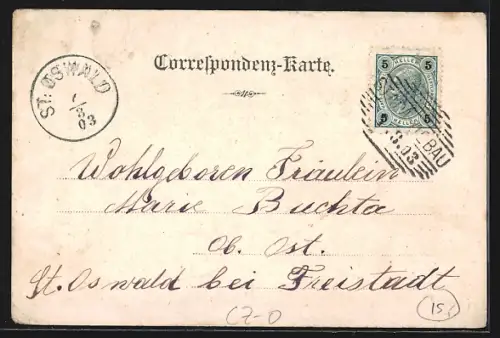 Correspondenz-Karte.
ST. OSWALD
1/3
03
5 HELLER 5
5 HELLER 5
BAU
3.03
Wohlgeboren Fräulein
Marie Buchta
Ob. Öst.
St. Oswald bei Freistadt
CZ-O